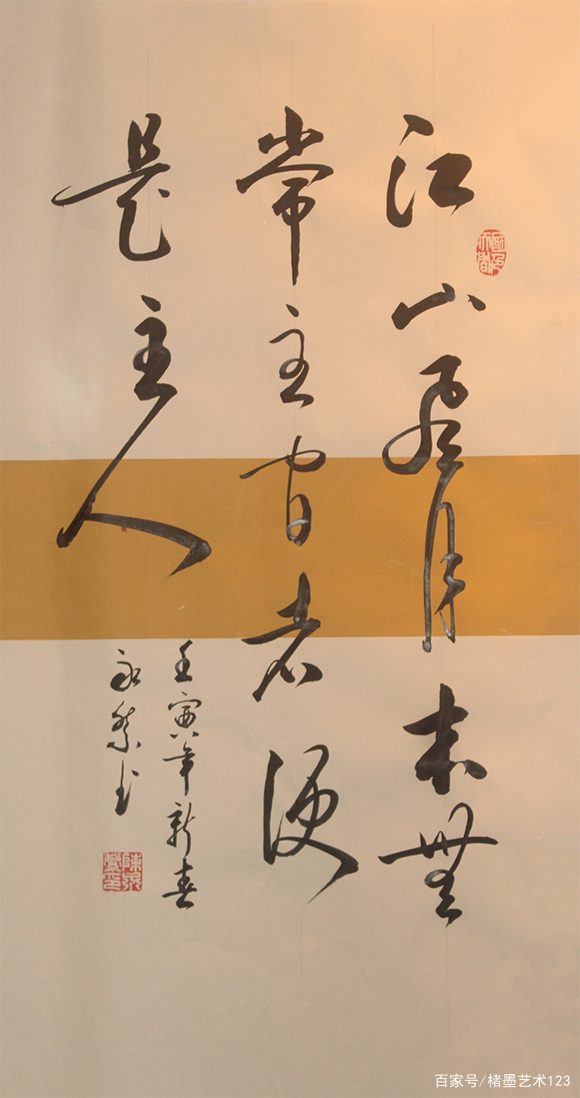 江山風月本無
常主閒者便
是主人
壬寅年新春
永書
百家号/楮墨艺术123